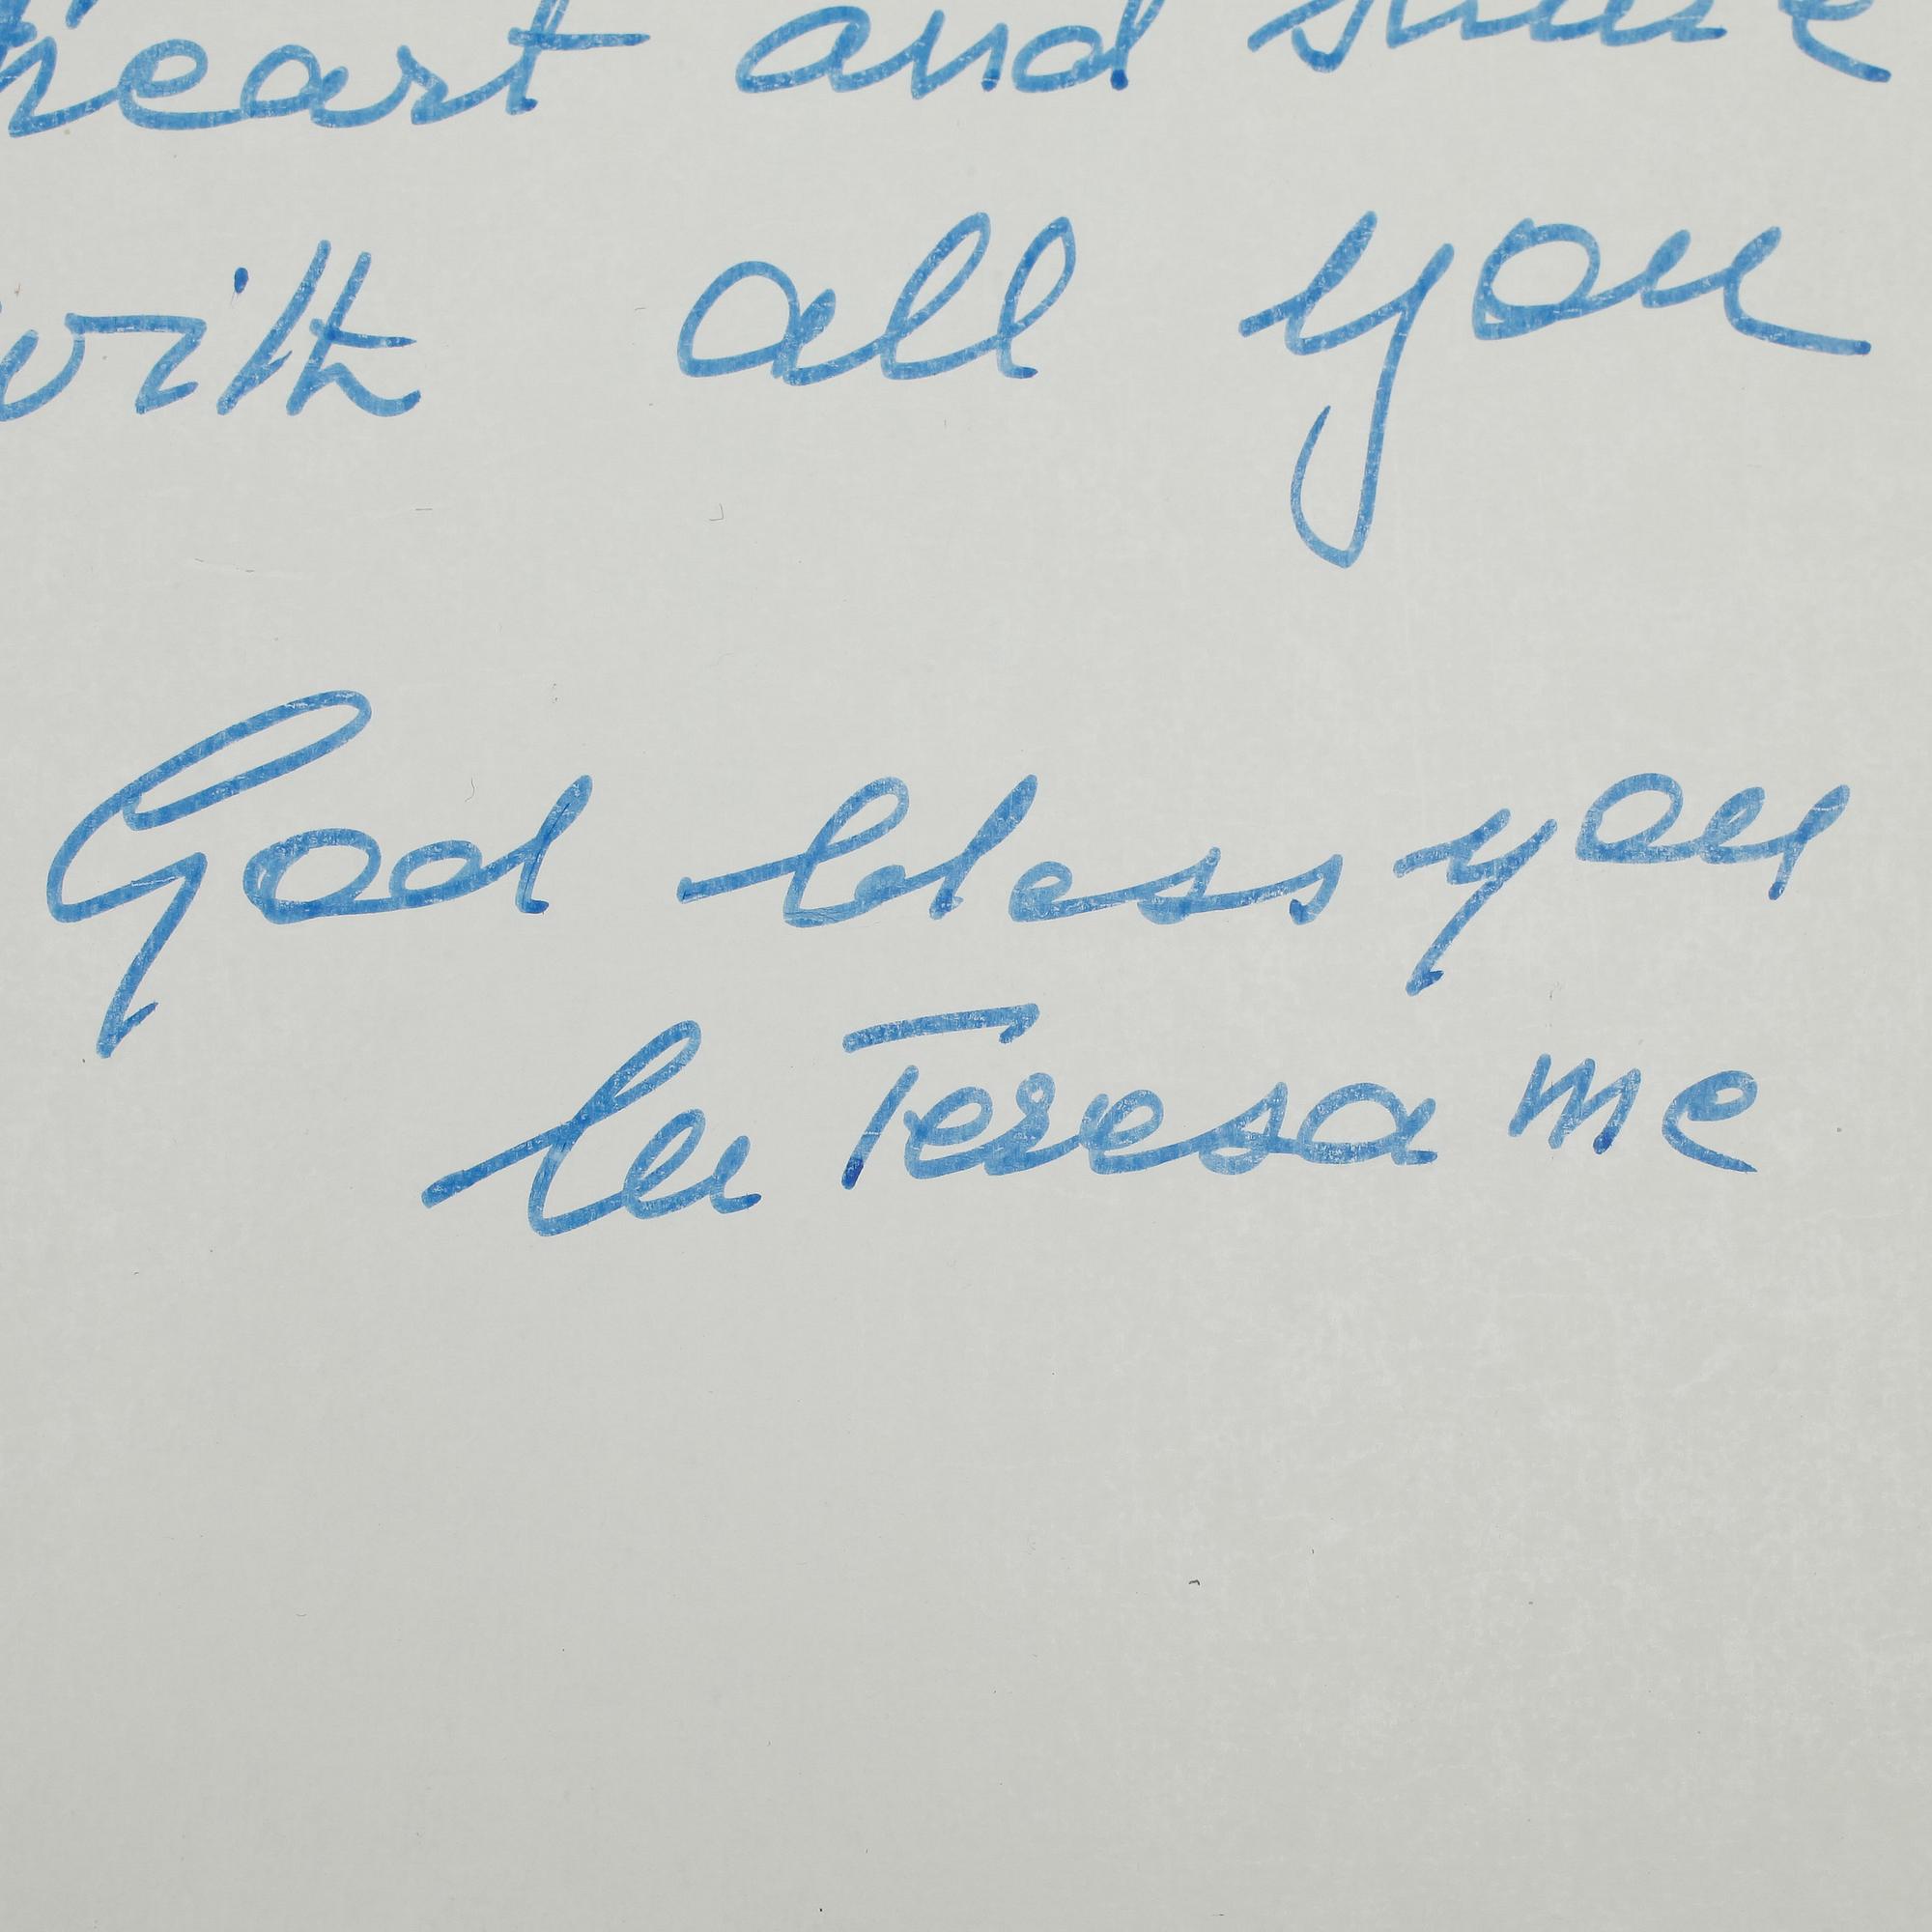 heart and
with all you
God bless you
lu Teresa mc